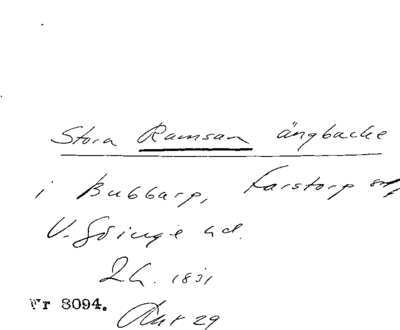 Stora Ramsan ängbacke
i Bubbarp, Farstorp sn,
V. Göinge hd.
L h. 1831
Nr 3094.
Akt 29